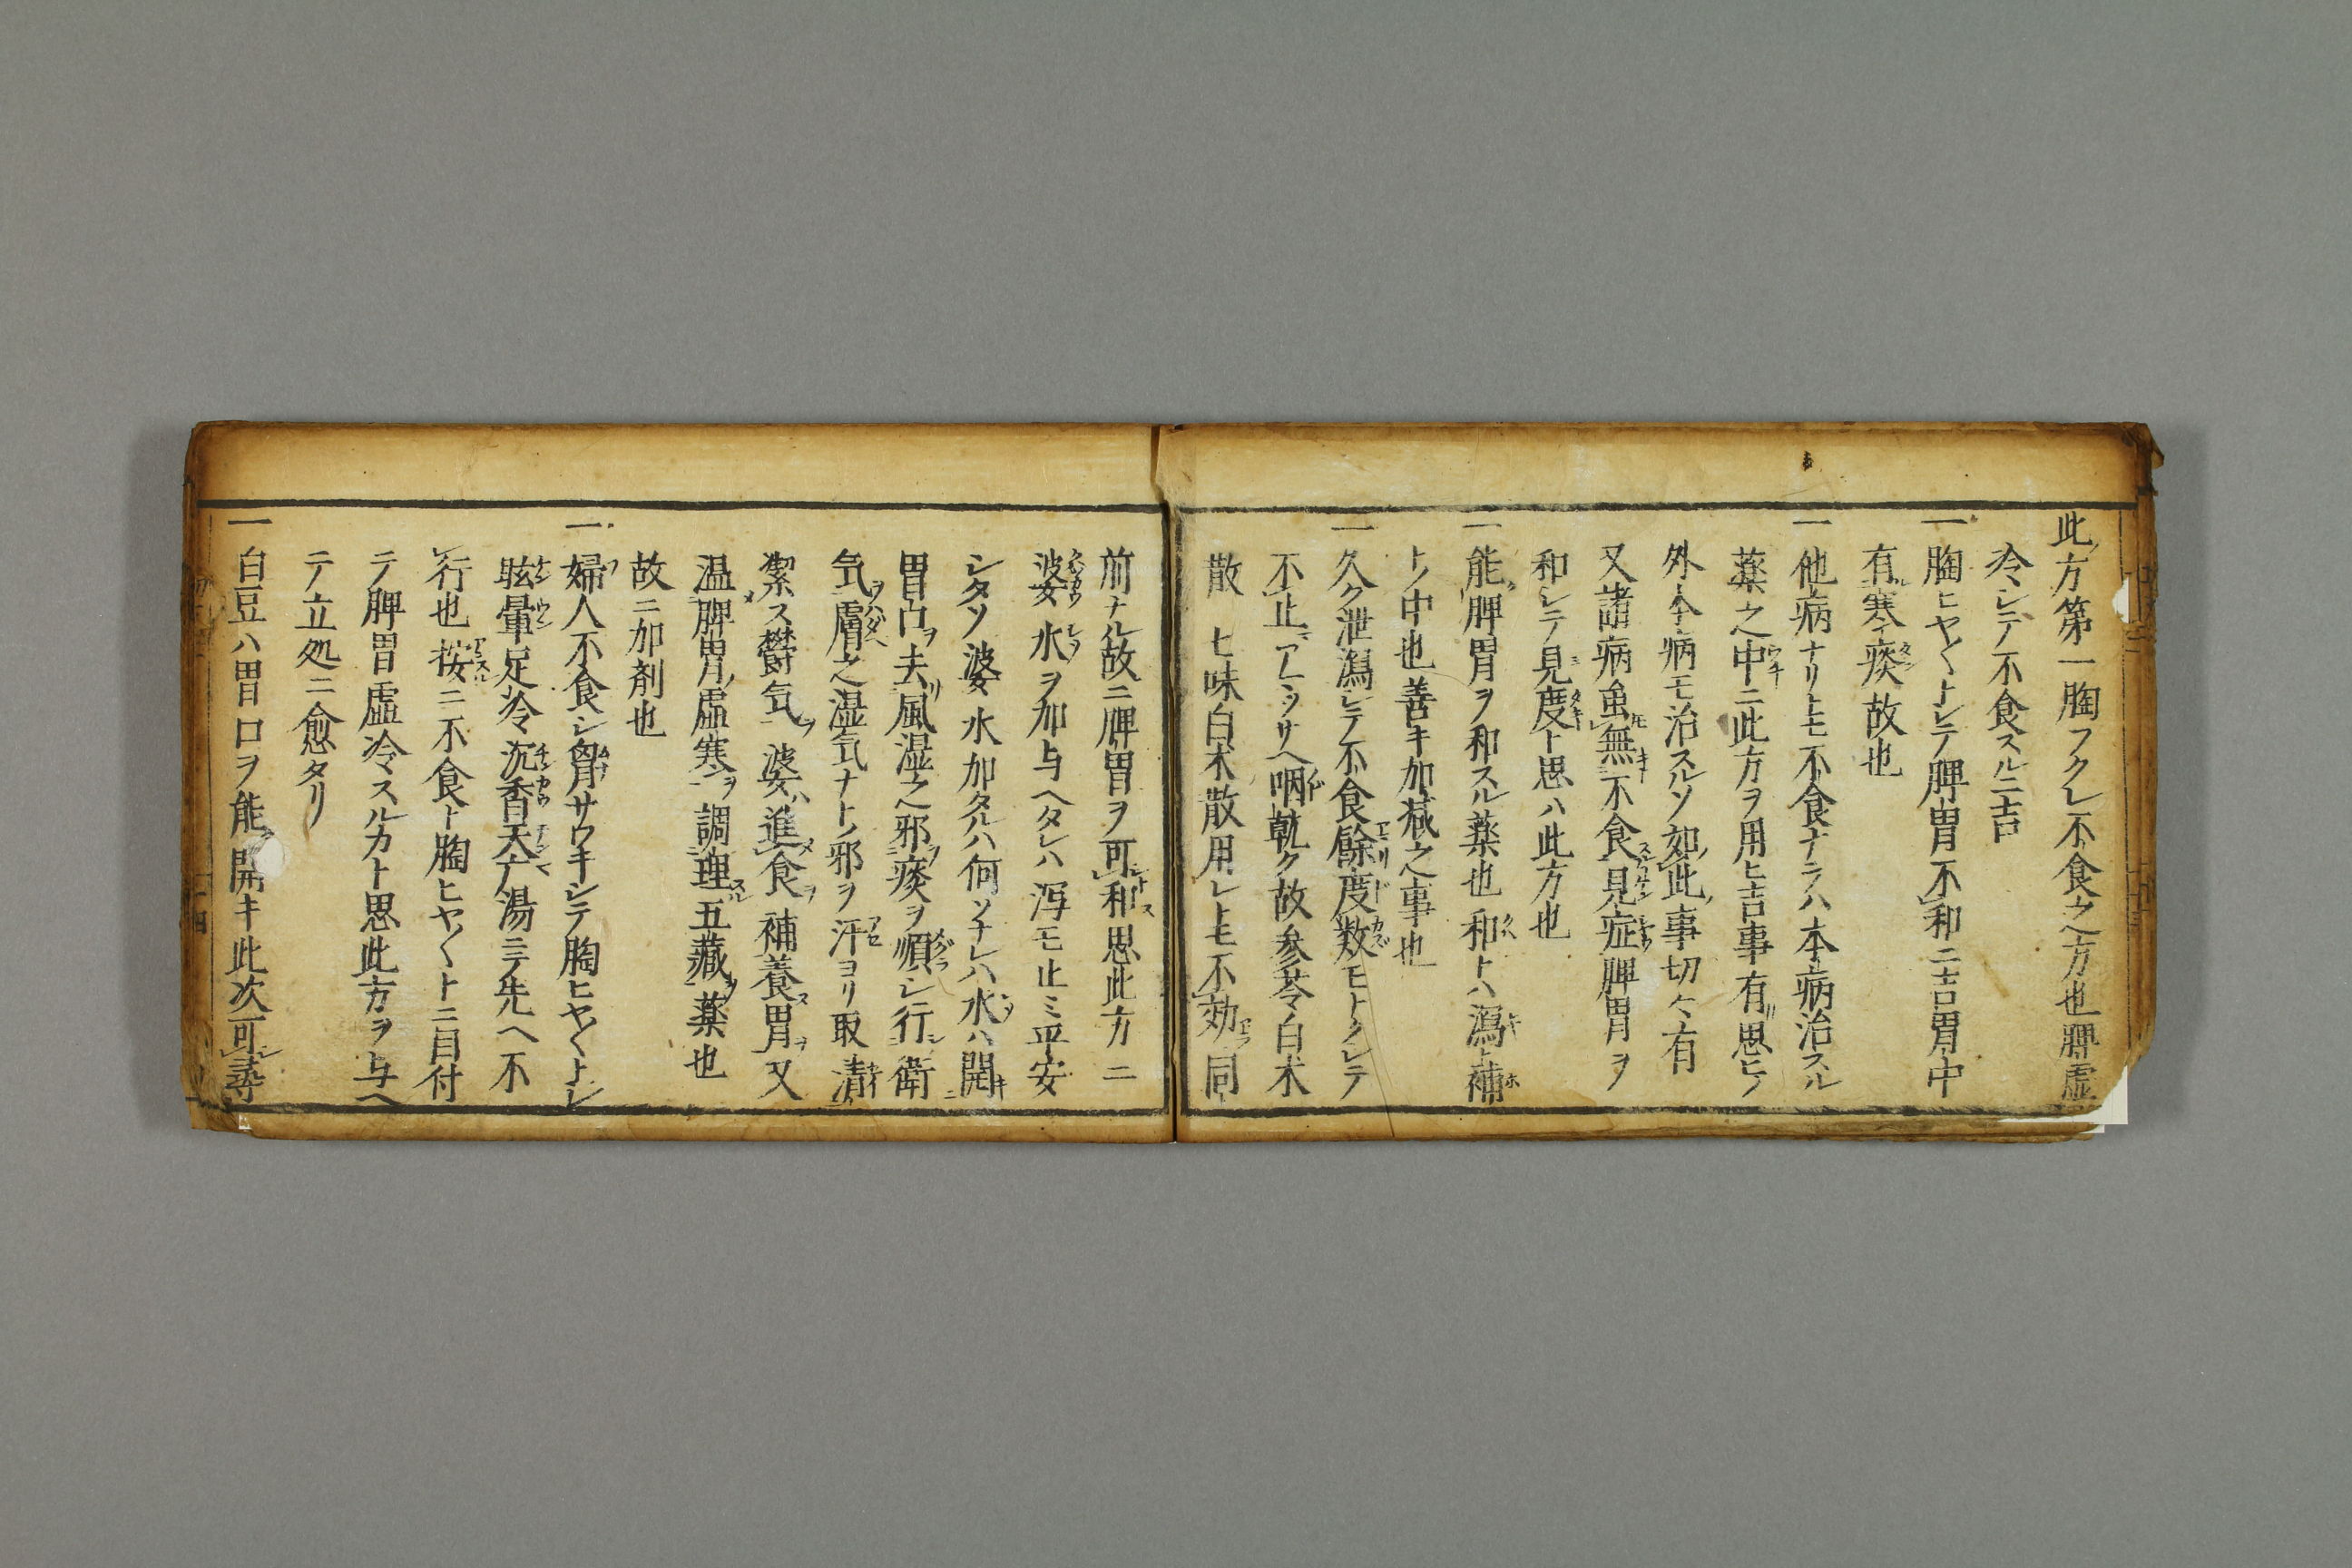 此方第一胸フクレ不食之方也脾虚
冷シテ不食スルニ吉
一胸ヒヤ〱トシテ脾胃不和ニ吉胃中
有寒痰故也
一他病ナリトモ不食ナラハ本病治スル
薬之中ニ此方ヲ用ヒ吉事有思ヒノ
外本病モ治スルソ如此事切々有
又諸病虫無不食見症脾胃ヲ
和シテ見度ト思ハ此方也
一能脾胃ヲ和スル薬也和トハ瀉補
トノ中也善キ加减之事也
一久ク泄瀉シテ不食餘度数モトクシテ
不止アレシサヘ咽乹ク故参苓白朮
散 七味白朮散用レトモ不効同
前ナル故ニ脾胃ヲ可和思此方ニ
婆 水ヲ加与ヘタレハ泻モ止ミ平安
シタソ婆 水加タルハ何ソナレハ水ハ開
胃凸ヲ去風湿之邪痰ヲ順シ行衛
気膚之湿気ナトノ邪ヲ汗ヨリ取清
潔ス欝気 婆ハ進食 補養胃又
温脾胃虚寒ヲ調理五藏薬也
故ニ加剤也
一婦人不食シ胷サウキシテ胸ヒヤ〱トシ
眩暈足冷沉香天亡湯ニテ先ヘ不
行也按ニ不食ト胸ヒヤ〱トニ目付
テ脾胃虚冷スルカト思此方ヲ与ヘ
テ立処ニ愈タリ
一白豆ハ胃口ヲ能開キ此次可尋